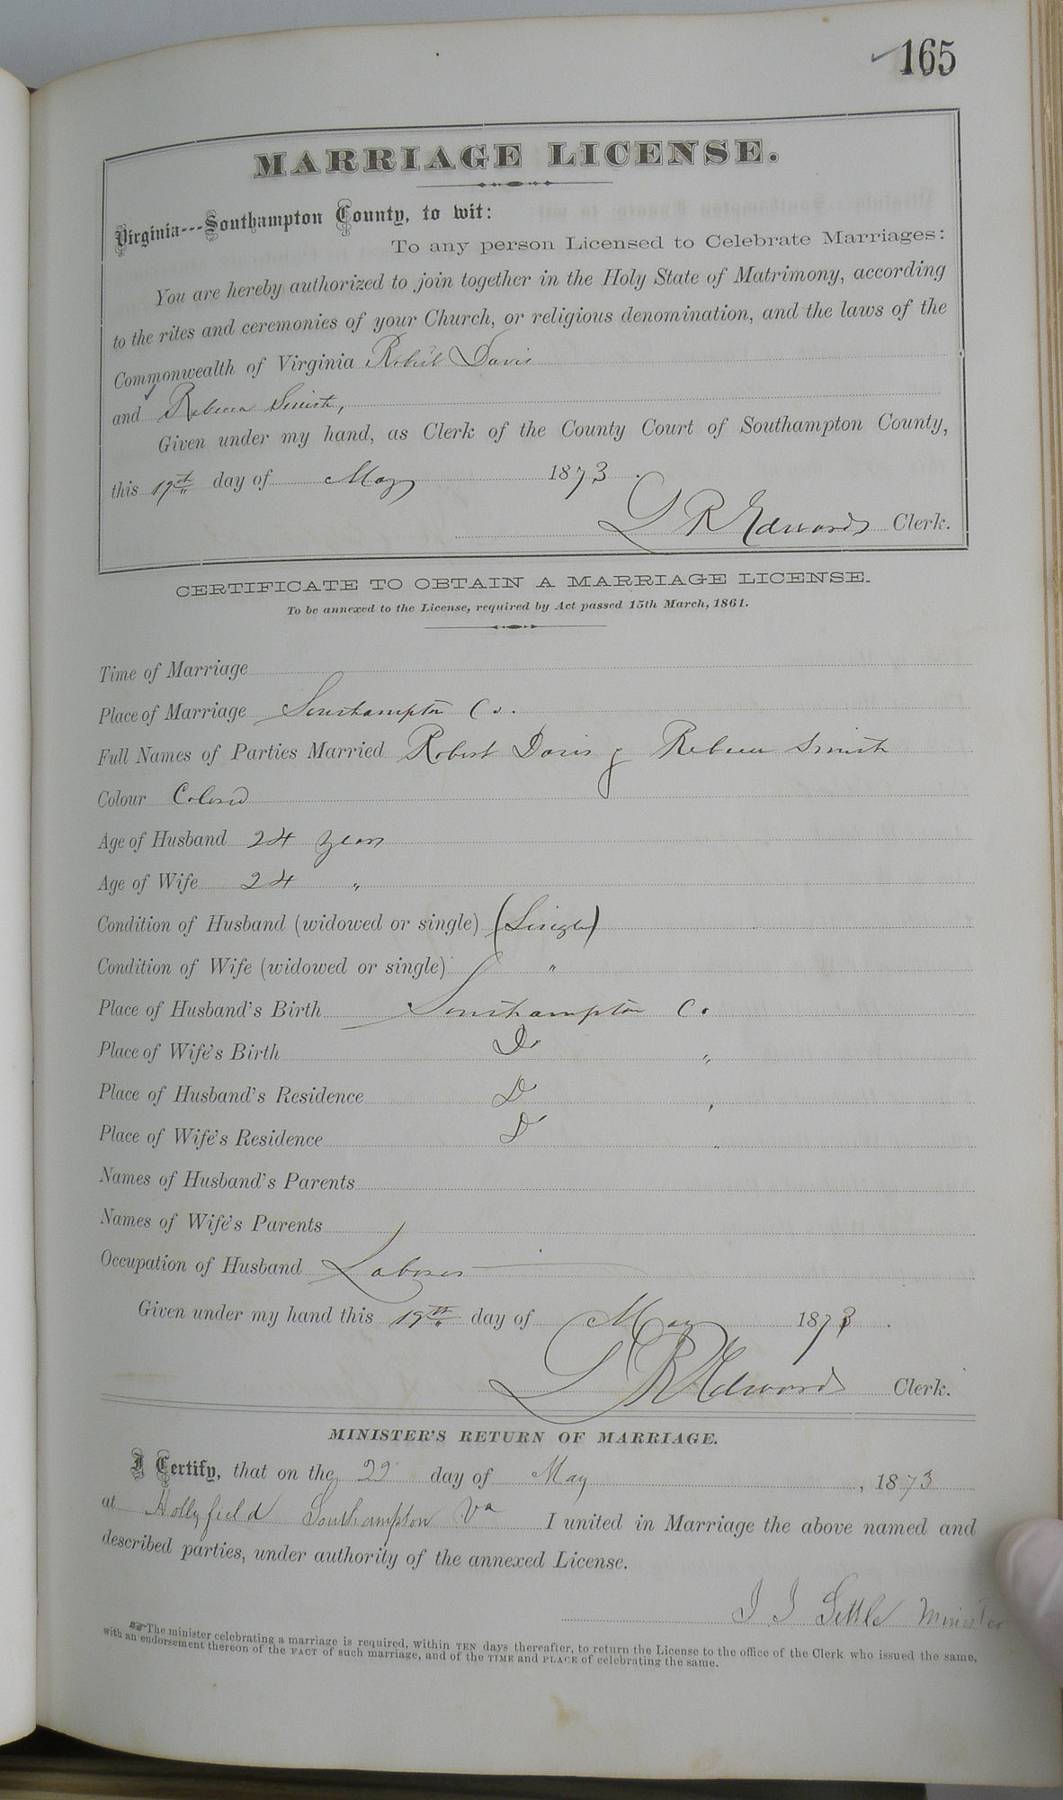 165
MARRIAGE LICENSE.
Virginia---Southampton County, to wit:
To any person Licensed to Celebrate Marriages:
You are hereby authorized to join together in the Holy State of Matrimony, according
to the rites and ceremonies of your Church, or religious denomination, and the laws of the
Commonwealth of Virginia Robert Davis
and Rebecca Smith,
Given under my hand, as Clerk of the County Court of Southampton County,
this 19th day of May 1873.
L R Edwards Clerk.
CERTIFICATE TO OBTAIN A MARRIAGE LICENSE.
To be annexed to the License, required by Act passed 15th March, 1861.
Time of Marriage
Place of Marriage Southampton Co.
Full Names of Parties Married Robert Davis & Rebecca Smith
Colour Colored
Age of Husband 24 years
Age of Wife 24 "
Condition of Husband (widowed or single) (Single)
Condition of Wife (widowed or single) "
Place of Husband's Birth Southampton Co.
Place of Wife's Birth Do "
Place of Husband's Residence D
Place of Wife's Residence D
Names of Husband's Parents
Names of Wife's Parents
Occupation of Husband Laborer
Given under my hand this 19th day of May 1873.
L R Edwards Clerk.
MINISTER'S RETURN OF MARRIAGE.
I Certify, that on the 22 day of May, 1873
at Hollyfield Southampton Va I united in Marriage the above named and
described parties, under authority of the annexed License.
J J Settle Minister
The minister celebrating a marriage is required, within TEN days thereafter, to return the License to the office of the Clerk who issued the same,
with an endorsement thereon of the FACT of such marriage, and of the TIME and PLACE of celebrating the same.